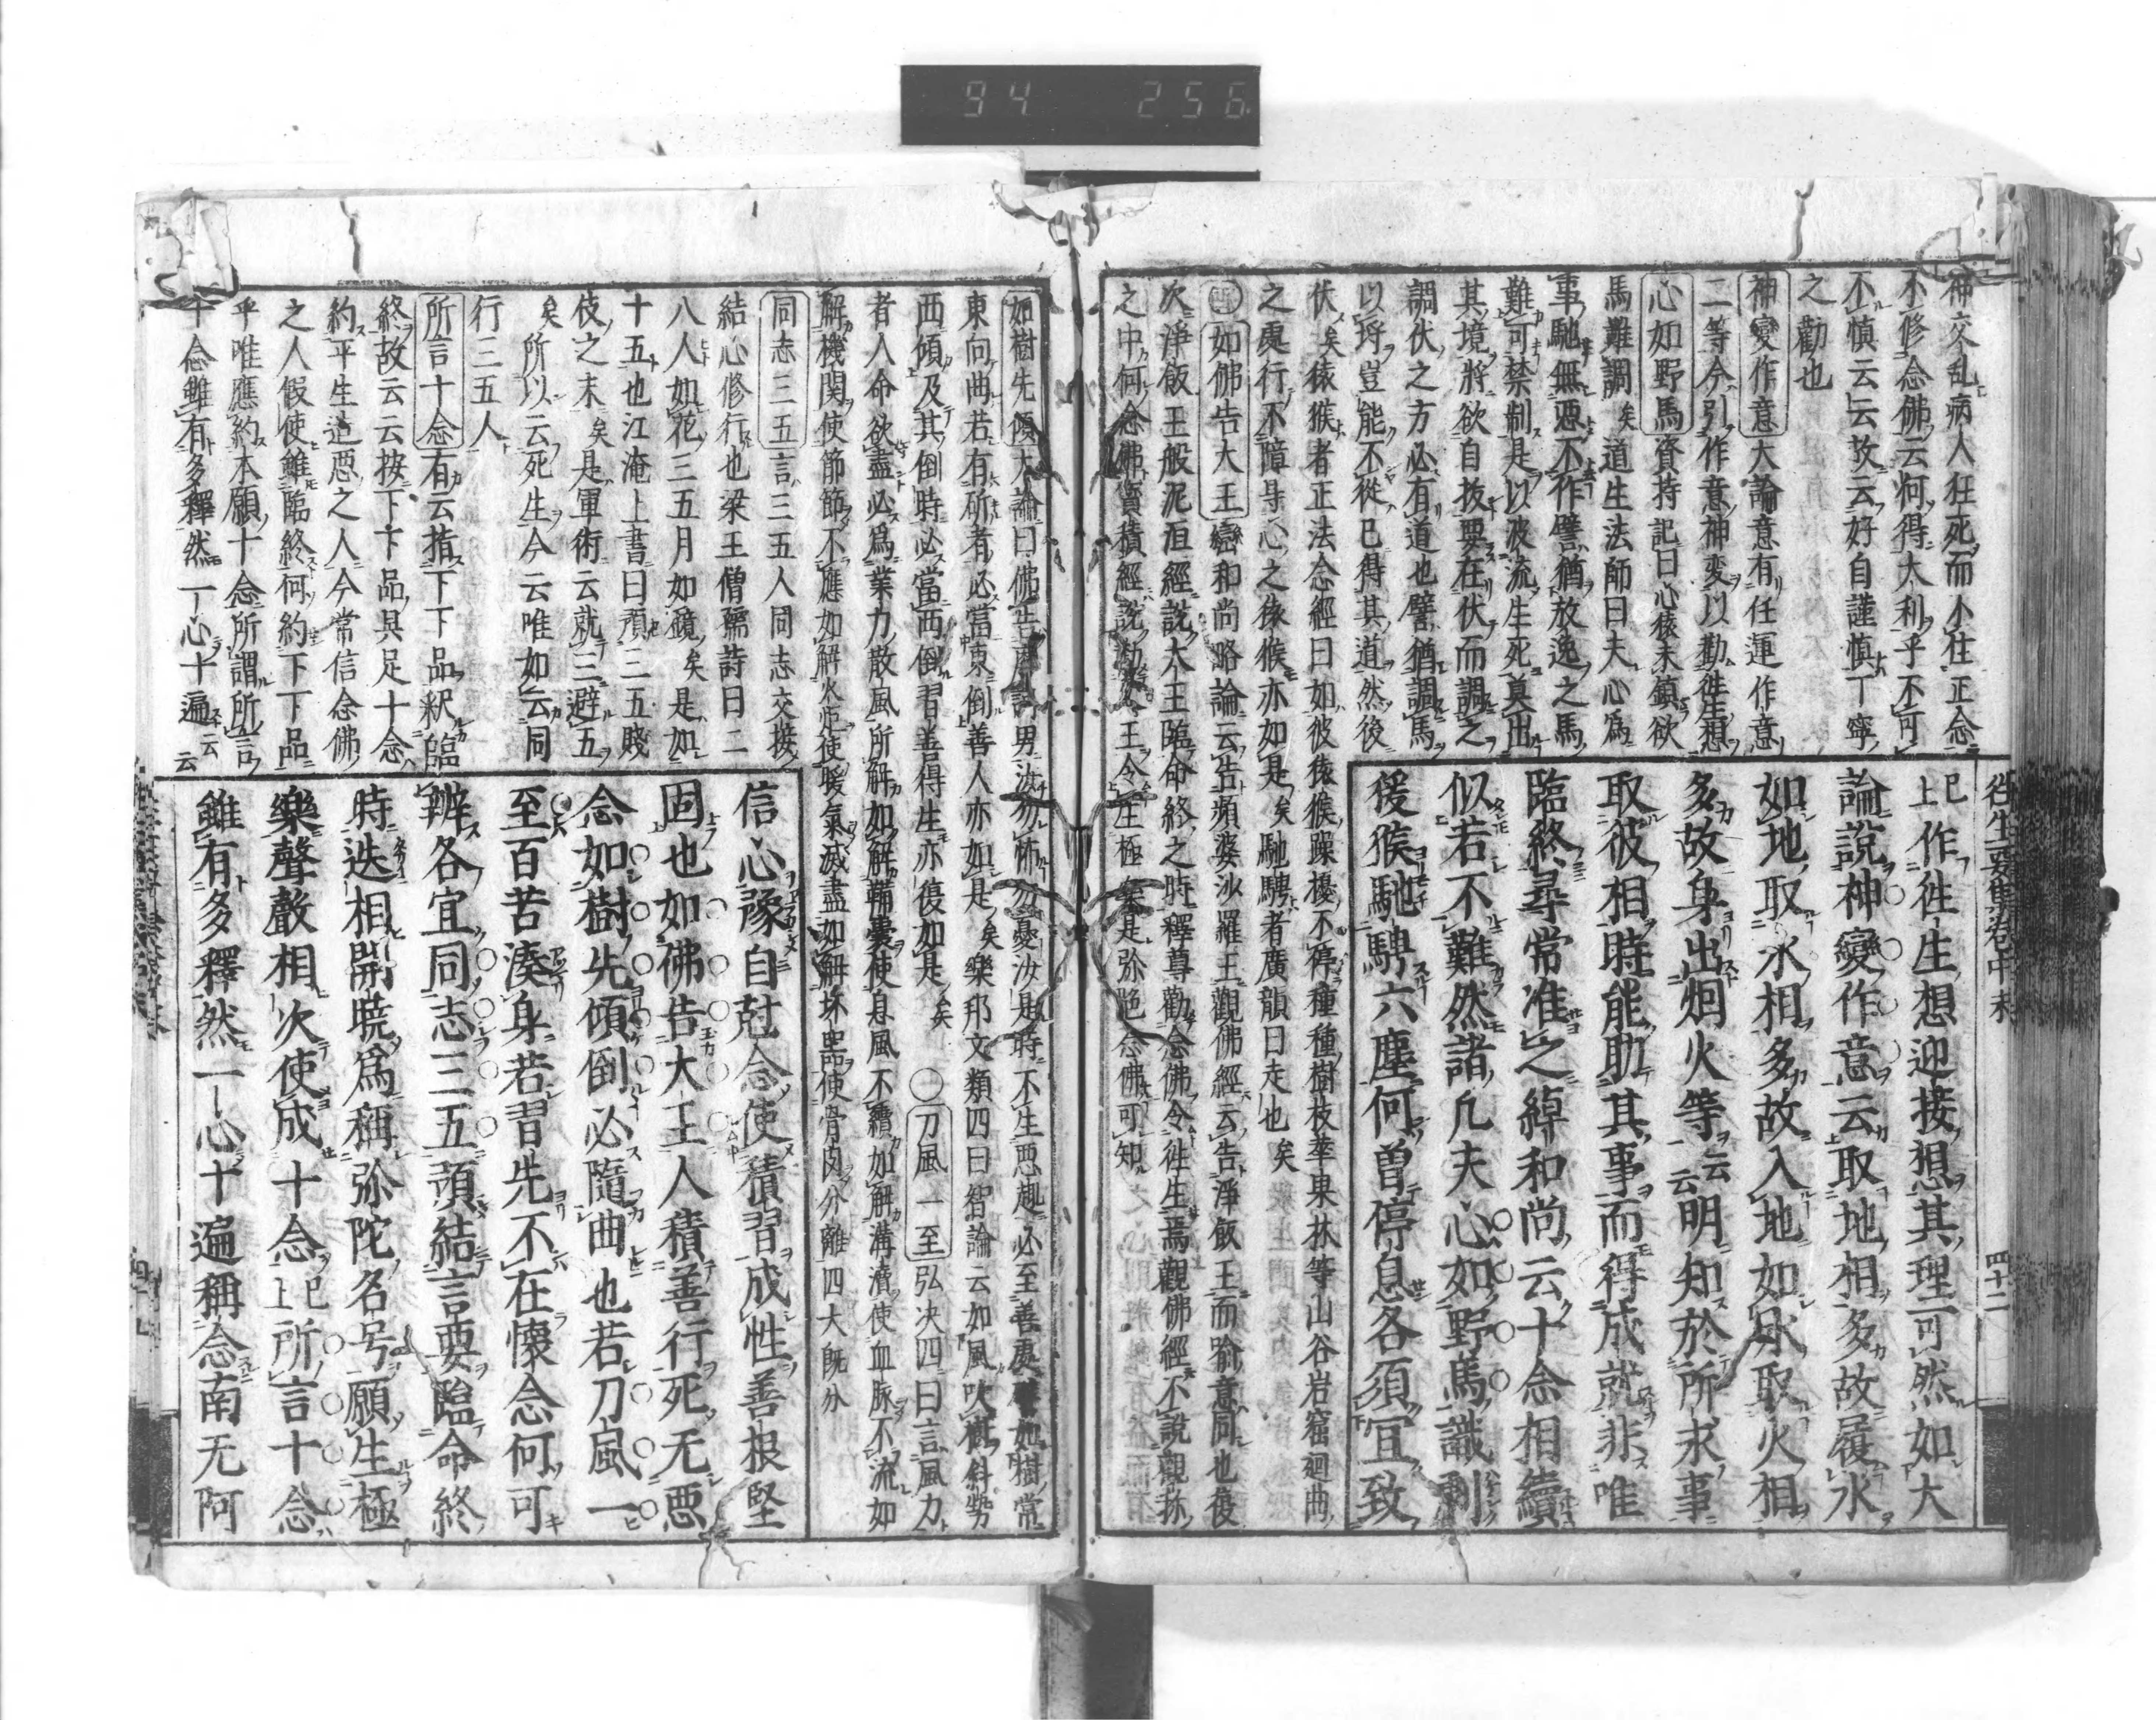 94 256
神交乱病人狂死而小住正念
不修念佛云何得大利乎不可
不慎云云故云好自謹慎丁寧
之勸也
神變作意大論意有任運作意
二等今引作意神変以勸徃生想
心如野馬資持記曰心猿未鎖欲
馬難調矣道生法師曰夫心為
事馳無悪不作譬猶放逸之馬
難可禁制是以波流生死莫出
其境將欲自拔要在伏而調之
調伏之方必有道也譬猶調馬
以埒豈能不從已得其道然後
伏矣猿猴者正法念經曰如彼猿猴躁擾不停種種樹枝華果林等山谷岩窟廻曲
之處行不障㝵心之猿猴亦如是矣馳騁者廣韻曰走也矣
如佛告大王巒和尚略論云告頻婆沙羅王觀佛經云告淨飯王而喻意同也復
次淨飯王般泥洹經説大王臨命終之時釋尊勸念佛令徃生焉觀佛經不説觀弥
之中何念佛寳積經説王令生極矣是弥陀念佛可知
徃生要集卷中末 四十二
已上作徃生想迎接想其理可然如大
論說神變作意云取地相多故履水
如地取水相多故入地如水取火相
多故身出烟火等云云明知於所求事
取彼相時能助其事而得成就非唯
臨終尋常准之綽和尚云十念相續
似若不難然諸凡夫心如野馬識劇
猨猴馳騁六塵何曽停息各須宜致
如樹先傾大論曰佛告摩訶男汝勿怖勿憂汝是時不生悪趣必至善處譬如樹常
東向曲若有斫者必當東倒善人亦如是矣樂邦文類四曰智論云如風吹樹斜勢
西傾及其倒時必當西倒習善得生亦復如是矣〇刀風一至弘决四曰言風力
者人命欲盡必為業力散風所解如解韛囊使息風不續如解溝瀆使血脉不流如
解機関使節節不應如解火炬使暖氣滅盡如解坏器使骨肉分離四大旣分
同志三五言三五人同志交接
結心修行也梁王僧孺詩曰二
八人如花三五月如鏡矣是如
十五也江淹上書曰預三五賤
伎之末矣是軍術云就三避五
矣所以云死生今云唯如云同
行三五人
所言十念有云指下下品釈臨
終故云云按下下品具足十念
約平生造悪之人今常信念佛
之人假使雖臨終何約下下品
乎唯應約本願十念所謂所言
十念雖有多釋然一心十遍云云
信心豫自尅念使積習成性善根堅
固也如佛告大王人積善行死无悪
念如樹先傾倒必隨曲也若刀風一
至百苦湊身若習先不在懐念何可
辨各宜同志三五預結言要臨命終
時迭相開曉為稱弥陀名号願生極
樂聲聲相次使成十念已上所言十念
雖有多釋然一心十遍稱念南无阿